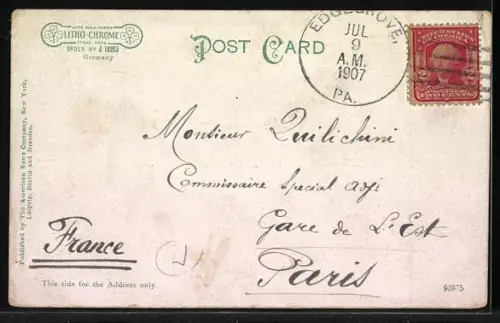 LITHO-CHROME
TRADE-MARK
Germany
POST CARD
EDGEGROVE,
JUL
9
A.M.
1907
PA.
Monsieur Quilichini
Commissaire Special adj
Gare de L'Est
Paris
France
Published by The American News Company, New York,
Leipzig, Berlin and Dresden.
This side for the Address only.